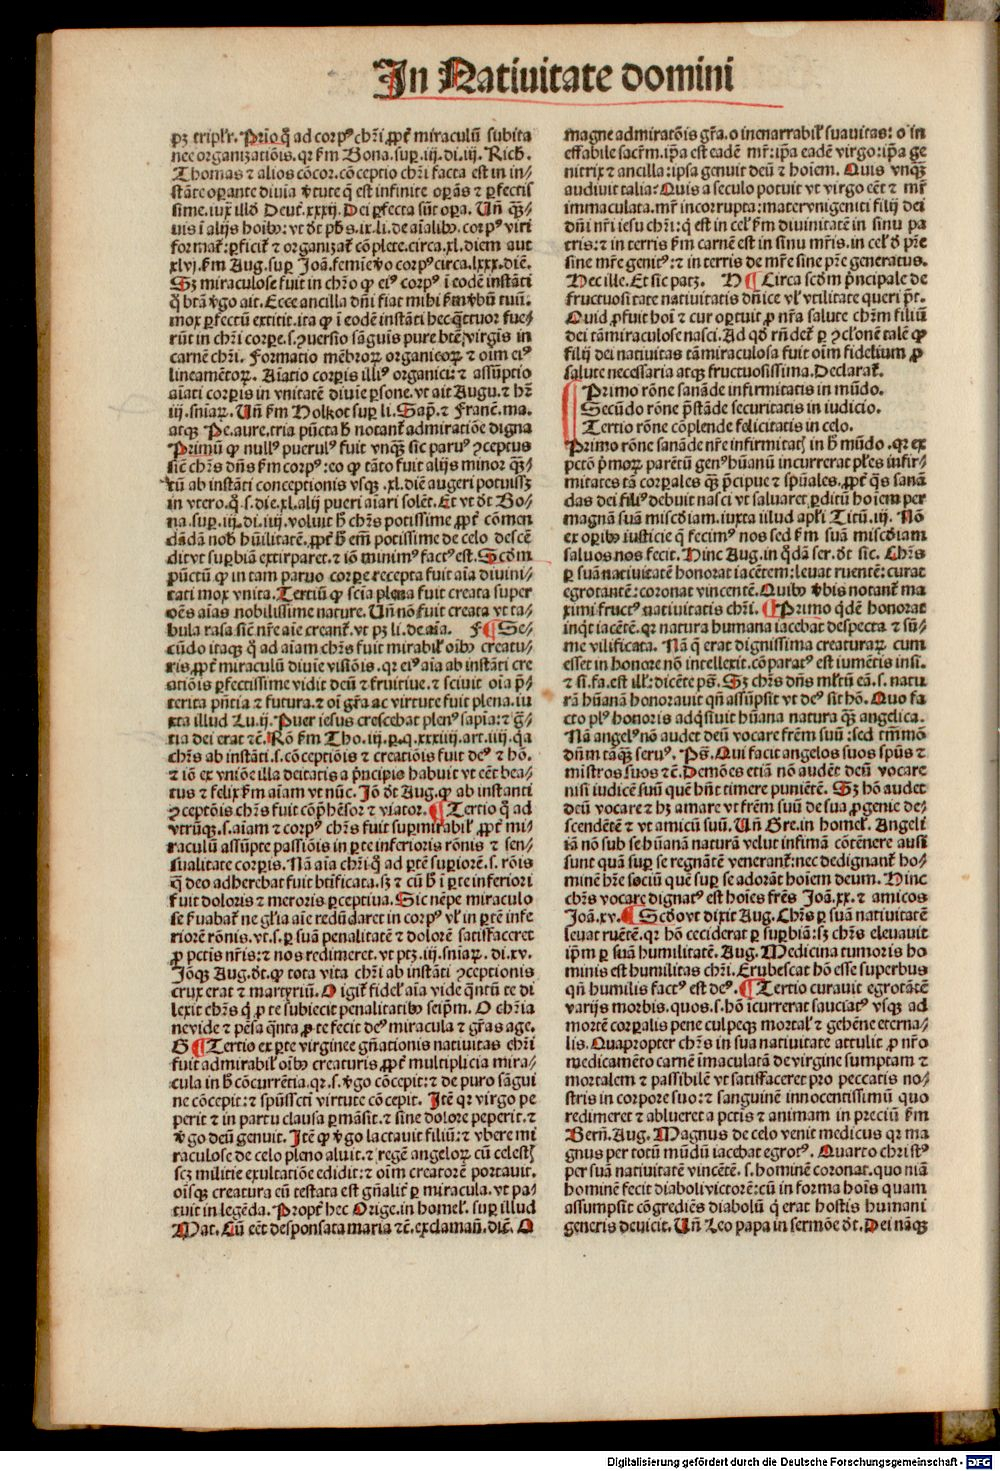 In Natiuitate domini
pꝫ triplr̄. Prīo q̄ ad corpꝰ chr̄i ꝓpt̄ miraculū subita
nee organizatiōis. qr ẜm Bona. suꝑ .iij. di. iij. Rich.
Thomas ⁊ alios cōcor. cōceptio chr̄i facta est in in⸗
stāte oꝑante diuīa v̓tute q̄ est infinite oꝑās ⁊ ꝑfectis
sime. iux̄ illđ Deut̄. xxxij. Dei ꝑfecta sūt oꝑa. Uñ q̄ꝫ⸗
uis ī alijs hoībꝰ: vt đt pħs. ix. li. de aīalibꝰ. corpꝰ viri
format̄: ꝑficit̄ ⁊ organizat̄ cōplete. circa. xl. diem aut
xlvj. ẜm Aug. suꝑ Joā. femīe v̓o corpꝰ circa. lxxx. diē.
Sꝫ miraculose fuit in chr̄o ꝙ eiꝰ corpꝰ ī eodē instāti
q̄ btā v̓go ait. Ecce ancilla dn̄i fiat mihi ẜm v̓bū tuū.
mox ꝑfectū extitit. ita ꝙ ī eodē instāti hec q̄ttuor fue⸗
rūt in chr̄i corpe. s. ꝯuersio sāguīs pure btē virgīs in
carnē chr̄i. Formatio mēbroꝝ organicoꝝ ⁊ oim eiꝰ
lineamētoꝝ. Aīatio corpis illiꝰ organici: ⁊ assūptio
aīati corpis in vnitatē diuīe ꝑsone. vt ait Augu. ⁊ hr̄
iij. sniaꝝ. Uñ ẜm Holkot suꝑ li. Sap̄. ⁊ Franc̄. ma.
atqꝫ Pe. aure, tria pūcta ħ notant̄ admiratiōe digna
Primū ꝙ nullꝰ puerulꝰ fuit vnq̄ꝫ sic paruꝰ ꝯceptus
sic̄ chr̄s dn̄s ẜm corpꝰ: eo ꝙ tāto fuit alijs minor q̄ꝫ⸗
tū ab instāti conceptionis vsqꝫ .xl. diē augeri potuissꝫ
in vtero. q̄. s. die. xl. alij pueri aīari solēt. Et vt đt Bo⸗
na. suꝑ. iij. di. iij. voluit ħ chr̄s potissime ꝓpt̄ cōmen
dādā nob̄ hūilitatē. ꝓpt̄ ħ em̄ potissime de celo descē
dit vt suꝑbiā extirparet. ⁊ iō minimꝰ factꝰ est. Scđm
pūctū ꝙ in tam paruo corpe recepta fuit aīa diuini⸗
tati mox vnita. Tertiū ꝙ scīa plena fuit creata super
oēs aīas nobilissime nature. Uñ nō fuit creata vt ta⸗
bula rasa sic̄ nr̄e aīe creant̄. vt pꝫ li. de aīa. F ¶ Se⸗
cūdo itaqꝫ q̄ ad aīam chr̄s fuit mirabil̓ oībꝰ creatu⸗
ris, ꝓpt̄ miraculū diuīe visiōis. qr eiꝰ aīa ab instāti cre
atiōis ꝑfectissime vidit deū ⁊ fruitiue. ⁊ sciuit oīa p̄⸗
terita pn̄tia ⁊ futura. ⁊ oī gr̄a ac virtute fuit plena. iu
xta illud Lu. ij. Puer iesus crescebat plenꝰ sapīa: ⁊ gr̄⸗
tia dei erat ⁊c̄. Rō ẜm Tho. iij. p. q. xxxiiij. art. iiij. q̄a
chr̄s ab instāti. s. cōceptiōis ⁊ creatiōis fuit deꝰ ⁊ hō.
⁊ iō ex vniōe illa deitatis a p̄ncipio habuit vt eēt bea⸗
tus ⁊ felix ẜm aīam vt nūc. Jō đt Aug. ꝙ ab instanti
ꝯceptōis chr̄s fuit cōp̄hēsor ⁊ viator. ¶ Tertio q̄ ad
vtrūqꝫ. s. aīam ⁊ corpꝰ chr̄s fuit suꝑmirabil̓ ꝓpt̄ mi⸗
raculū assūpte passiōis in ꝑte inferioris rōnis ⁊ sen⸗
sualitate corpis. Nā aīa chr̄i q̄ ad ꝑtē suꝑiorē. s. rōis
q̄ deo adherebat fuit btīficata. sꝫ ⁊ cū ħ ī ꝑte inferiori
fuit doloris ⁊ meroris ꝑceptiua. Sic nēpe miraculo
se ẜuabat̄ ne gl̓ia aīe redūdaret in corpꝰ vl̓ in ꝑtē infe
riorē rōnis. vt. s. ꝑ suā penalitatē ⁊ dolorē satisfaceret
ꝓ pctīs nr̄is: ⁊ nos redimeret. vt ptꝫ. iij. sniaꝝ. di. xv.
Jōqꝫ Aug. đt. ꝙ tota vita chr̄i ab instāti ꝯceptionis
crux erat ⁊ martyriū. O igit̄ fidel̓ aīa vide q̄ntū te di
lexit chr̄s q̄ ꝓ te subiecit penalitatibꝰ seip̄m. O chr̄ia
ne vide ⁊ pēsa q̄nta ꝓ te fecit deꝰ miracula ⁊ gr̄as age.
G ¶ Tertio ex ꝑte virginee gn̄ationis natiuitas chr̄i
fuit admirabil̓ oībꝰ creaturis ꝓpt̄ multiplicia mira⸗
cula in ħ cōcurrētia. qr. s. v̓go cōcepit: ⁊ de puro sāgui
ne cōcepit: ⁊ spūssctī virtute cōcepit. Jtē qr virgo pe
perit ⁊ in partu clausa ꝑmāsit. ⁊ sine dolore peperit. ⁊
v̓go deū genuit. Jtē ꝙ v̓go lactauit filiū: ⁊ vbere mi
raculose de celo pleno aluit. ⁊ regē angeloꝝ cū celesti
scꝫ militie exultatiōe edidit: ⁊ oīm creatorē portauit.
oīsqꝫ creatura eū testata est gn̄alit̄ ꝑ miracula. vt pa⸗
tuit in legēda. Propt̄ hec Orige. in homel̓. suꝑ illud
Mat. Cū eēt desponsata maria ⁊c̄. exclamaū. diē. O
magne admiratōis gr̄a. o inenarrabil̓ suauitas: o in
effabile sacr̄m. ip̄a est eadē mr̄: ip̄a eadē virgo: ip̄a ge
nitrix ⁊ ancilla: ipsa genuit deū ⁊ hoīem. Quis vnq̄ꝫ
audiuit talia: Quis a seculo potuit vt virgo eēt ⁊ mr̄
immaculata. mr̄ incorrupta: mater vnigeniti filij dei
dn̄i nr̄i iesu chr̄i: q̄ est in cel̓ ẜm diuinitatē in sinu pa
tris: ⁊ in terris ẜm carnē est in sinu mr̄is. in cel̓ đ pr̄e
sine mr̄e genitꝰ: ⁊ in terris de mr̄e sine pr̄e generatus.
Hec ille. Et sic patꝫ. H ¶ Circa scđm p̄ncipale de
fructuositate natiuitatis dn̄ice vl̓ vtilitate queri pt̄.
Quid ꝓfuit hoī ⁊ cur oꝑtuit ꝓ nr̄a salute chr̄m filiū
dei tā miraculose nasci. Ad qđ rn̄det̄ ꝑ ꝯclonē talē ꝙ
filij dei natiuitas tā miraculosa fuit oīm fidelium ꝓ
salute necessaria atqꝫ fructuosissima. Declarat̄.
Primo rōne sanāde infirmitatis in mūdo.
Secūdo rōne p̄stāde securitatis in iudicio.
Tertio rōne cōplende felicitatis in celo.
Primo rōne sanāde nr̄e infirmitatꝭ in ħ mūdo. qr ex
pctō p̄moꝝ parētū genꝰ hūanū incurrerat ples infir⸗
mitates tā corꝑales q̄ꝫ p̄cipue ⁊ spūales. ꝓpt̄ q̄s sanā
das dei filiꝰ debuit nasci vt saluaret ꝑditū hoīem per
magnā suā miscđiam. iuxta illud apl̓i Titū. iij. Nō
ex oꝑibꝰ iusticie q̄ fecimꝰ nos sed ẜm suā miscđiam
saluos nos fecit. Hinc Aug. in q̄dā ser. đt sic. Chr̄s
ꝑ suā natiuitatē honorat iacētem: leuat ruentē: curat
egrotantē: coronat vincentē. Quibꝰ v̓bis notant̄ ma
ximi fructꝰ natiuitatis chr̄i. ¶ Primo q̄dē honorat
inq̄t iacētē. qr natura humana iacebat despecta ⁊ sū⸗
me vilificata. Nā q̄ erat dignissima creaturaꝝ cum
esset in honore nō intellexit. cōparatꝰ est iumētis insi.
⁊ si. fa. est ill̓: dicēte pṡ. Sꝫ chr̄s dn̄s mltū eā. s. natu
rā hūanā honorauit qn̄ assūpsit vt deꝰ sit hō. Quo fa
cto plꝰ honoris adq̄siuit hūana natura q̄ꝫ angelica.
Nā angelꝰ nō audet deū vocare frēm suū: sed tm̄mō
dn̄m tāq̄ꝫ seruꝰ. Pṡ. Qui facit angelos suos spūs ⁊
mīstros suos ⁊c̄. Demōes etiā nō audēt deū vocare
nisi iudicē suū quē hn̄t timere puniētē. Sꝫ hō audet
deū vocare ⁊ hꝫ amare vt frēm suū de sua ꝓgenie de⸗
scendētē ⁊ vt amicū suū. Uñ Gre. in homel̓. Angeli
iā nō sub se hūanā naturā velut infimā cōtēnere ausi
sunt quā suꝑ se regnātē venerant̄: nec dedignant̄ ho⸗
minē hr̄e sociū quē suꝑ se adorāt hoīem deum. Hinc
chr̄s vocare dignatꝰ est hoīes frēs Joā. xx. ⁊ amicos
Joā. xv. ¶ Scđo vt dixit Aug. Chr̄s ꝑ suā natiuitatē
leuat ruētē. qr hō ceciderat ꝑ suꝑbiā: sꝫ chr̄s eleuauit
ip̄m ꝑ suā humilitatē. Aug. Medicina tumoris ho
minis est humilitas chr̄i. Erubescat hō esse superbus
qn̄ humilis factꝰ est deꝰ. ¶ Tertio curauit egrotātē
varijs morbis. quos. s. hō īcurrerat sauciatꝰ vsqꝫ ad
mortē corꝑalis pene culpeqꝫ mortal̓ ⁊ gehēne eterna⸗
lis. Quapropter chr̄s in sua natiuitate attulit ꝓ nr̄o
medicamēto carnē īmaculatā de virgine sumptam ⁊
mortalem ⁊ passibilē vt satisfaceret pro peccatis no⸗
stris in corpore suo: ⁊ sanguinē innocentissimū quo
redimeret ⁊ ablueret a pctīs ⁊ animam in preciū ẜm
Bern̄. Aug. Magnus de celo venit medicus qr ma
gnus per totū mūdū iacebat egrotꝰ. Quarto christꝰ
per suā natiuitatē vincētē. s. hominē coronat. quo niā
hominē fecit diaboli victorē: cū in forma hoīs quam
assumpsit cōgrediēs diabolū q̄ erat hostis humani
generis deuicit. Uñ Leo papa in sermōe đt. Dei nāqꝫ
Digitalisierung gefördert durch die Deutsche Forschungsgemeinschaft - DFG